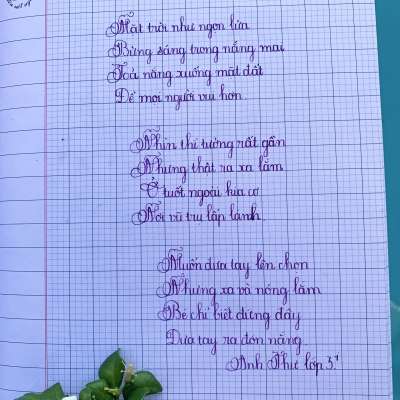 Mặt trời như ngọn lửa
Bừng sáng trong nắng mai
Toả nắng xuống mặt đất
Để mọi người vui hơn.
Nhìn thì tưởng rất gần
Nhưng thật ra xa lắm
Ở tuốt ngoài kia cơ
Nơi vũ trụ lấp lánh
Muốn đưa tay lên chọn
Nhưng xa và nóng lắm
Bé chỉ biết đứng đây
Đưa tay ra đón nắng.
Anh Thư lớp 3.1